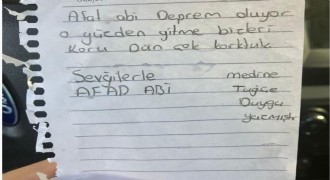 Afat abi Deprem oluyor
o yüzden gitme bizleri
Koru Dan çok korktuk
Sevgilerle medine
AFAD ABİ Tuğçe
Duygu
yazmıştır